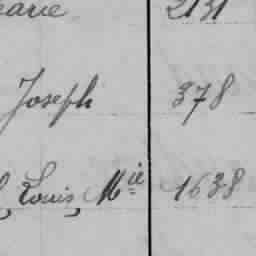 2131
Joseph 378
Louis, Mie 1638